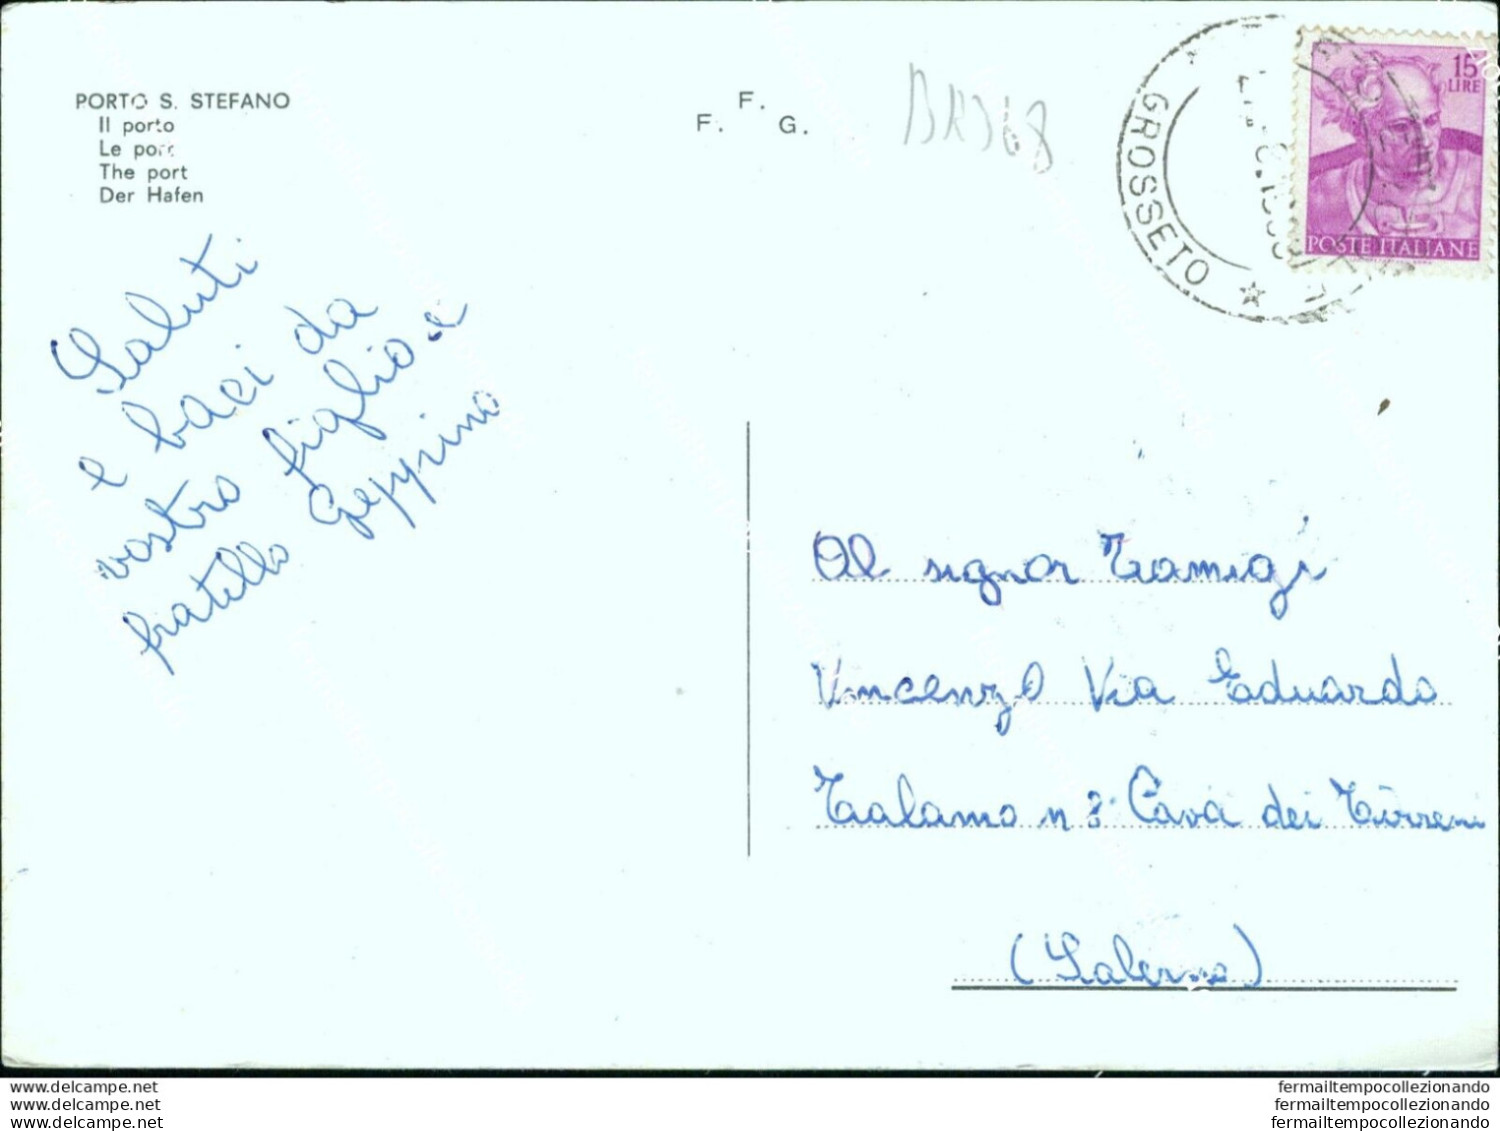 PORTO S. STEFANO
Il porto
Le port
The port
Der Hafen
F.
F. G.
BR368
15
LIRE
POSTE ITALIANE
GROSSETO
Saluti
e baci da
vostro figlio e
fratello Geppino
Al signor Tramigi
Vincenzo Via Eduardo
Talamo n 3 Cava dei Tirreni
(Salerno)
www.delcampe.net
www.delcampe.net
www.delcampe.net
fermailtempocollezionando
fermailtempocollezionando
fermailtempocollezionando